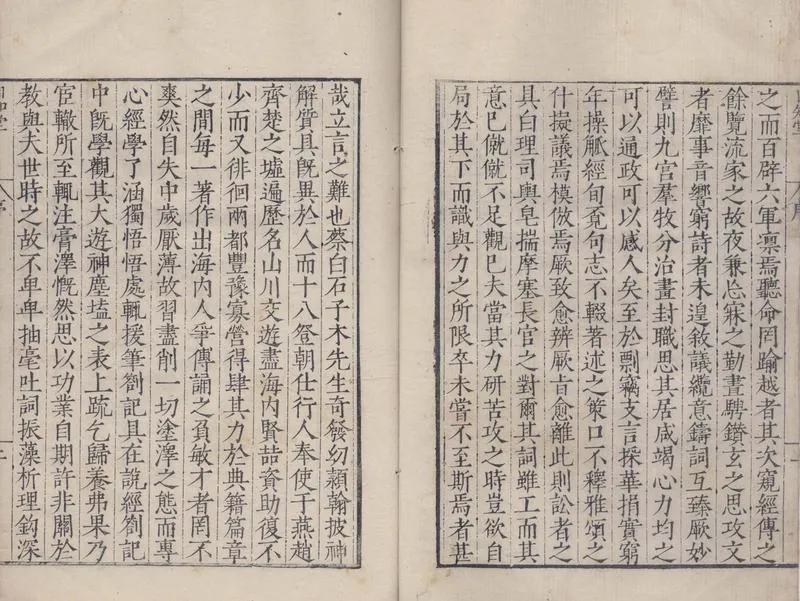 之而百辟六軍凛焉聽命罔踰越者其次窺經傳之
餘覽流家之故夜兼忘寐之勤晝騁鑽玄之思攻文
者靡事音響窮詩者未遑敘議纜意鑄詞互臻厥妙
譬則九宫羣牧分治畫封職思其居咸竭心力均之
可以通政可以感人矣至於剽竊支言採華捐實窮
年操觚經旬覔句志不輟著述之策口不釋雅頌之
什擬議焉模倣焉厥致愈辨厥旨愈離此則訟者之
具白理司輿皂揣摩塞長官之對爾其詞雖工而其
意已僦僦不足觀已夫當其力研苦攻之時豈欲自
局於其下而識與力之所限卒未嘗不至斯焉者甚
哉立言之難也蔡白石子木先生奇發幼穎翰披神
解質具旣異於人而十八登朝仕行人奉使于燕趙
齊楚之墟遍歷名山川交遊盡海内賢喆資助復不
少而又徘徊兩都豐豫寡營得肆其力於典籍篇章
之間每一著作出海内人爭傳誦之負敏才者罔不
爽然自失中歲厭薄故習盡削一切塗澤之態而專
心經學了涵獨悟悟處輒援筆劄記具在說經劄記
中旣學觀其大遊神塵壒之表上疏乞歸養弗果乃
宦轍所至輒注膏澤慨然思以功業自期許非關於
教與夫世時之故不卑卑抽毫吐詞振藻析理鈎深